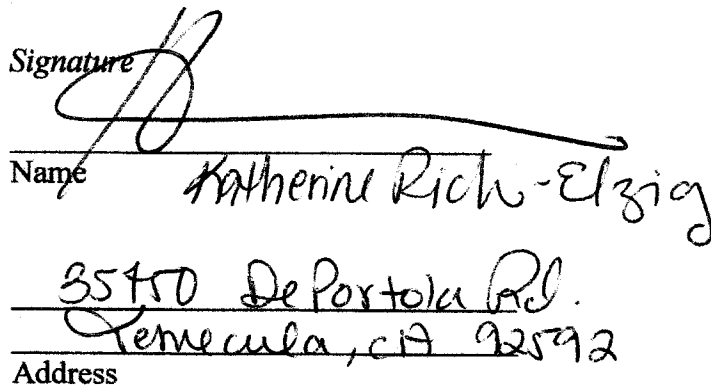 Signature
Name
Katherine Rich-Elzig
35450 De Portola Rd.
Temecula, CA 92592
Address